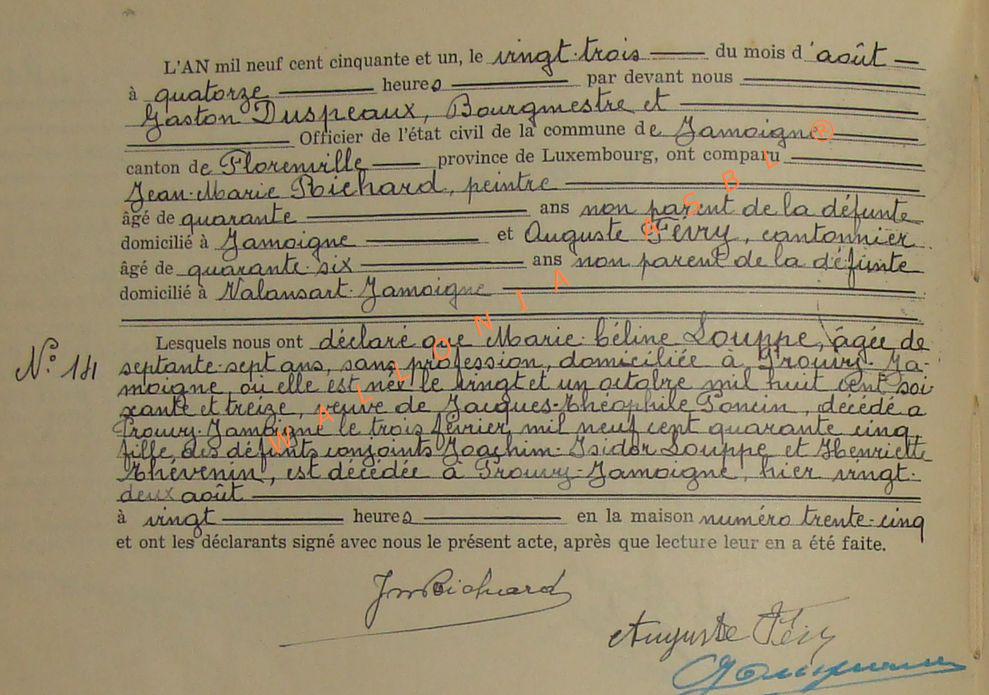 L'AN mil neuf cent cinquante et un, le vingt-trois du mois d'août
à quatorze heures par devant nous
Gaston Duspeaux, Bourgmestre et
Officier de l'état civil de la commune de Jamoigne
canton de Florenville province de Luxembourg, ont comparu
Jean-Marie Richard, peintre
âgé de quarante ans non parent de la défunte
domicilié à Jamoigne et Auguste Févry, cantonnier
âgé de quarante-six ans non parent de la défunte
domicilié à Valansart-Jamoigne
Lesquels nous ont déclaré que Marie-Céline Louppe, âgée de
N° 14 septante-sept ans, sans profession, domiciliée à Prouvy-Ja-
moigne, où elle est née le vingt et un octobre mil huit cent soi
xante et treize, veuve de Jacques-Théophile Poncin, décédé à
Prouvy-Jamoigne le trois février mil neuf cent quarante cinq
fille des défunts conjoints Joachim-Isidor Louppe et Henriette
Thévenin, est décédée à Prouvy-Jamoigne, hier vingt-
deux août
à vingt heures en la maison numéro trente-cinq
et ont les déclarants signé avec nous le présent acte, après que lecture leur en a été faite.
JmRichard
Auguste Févry
WALLONIA ASBL ®